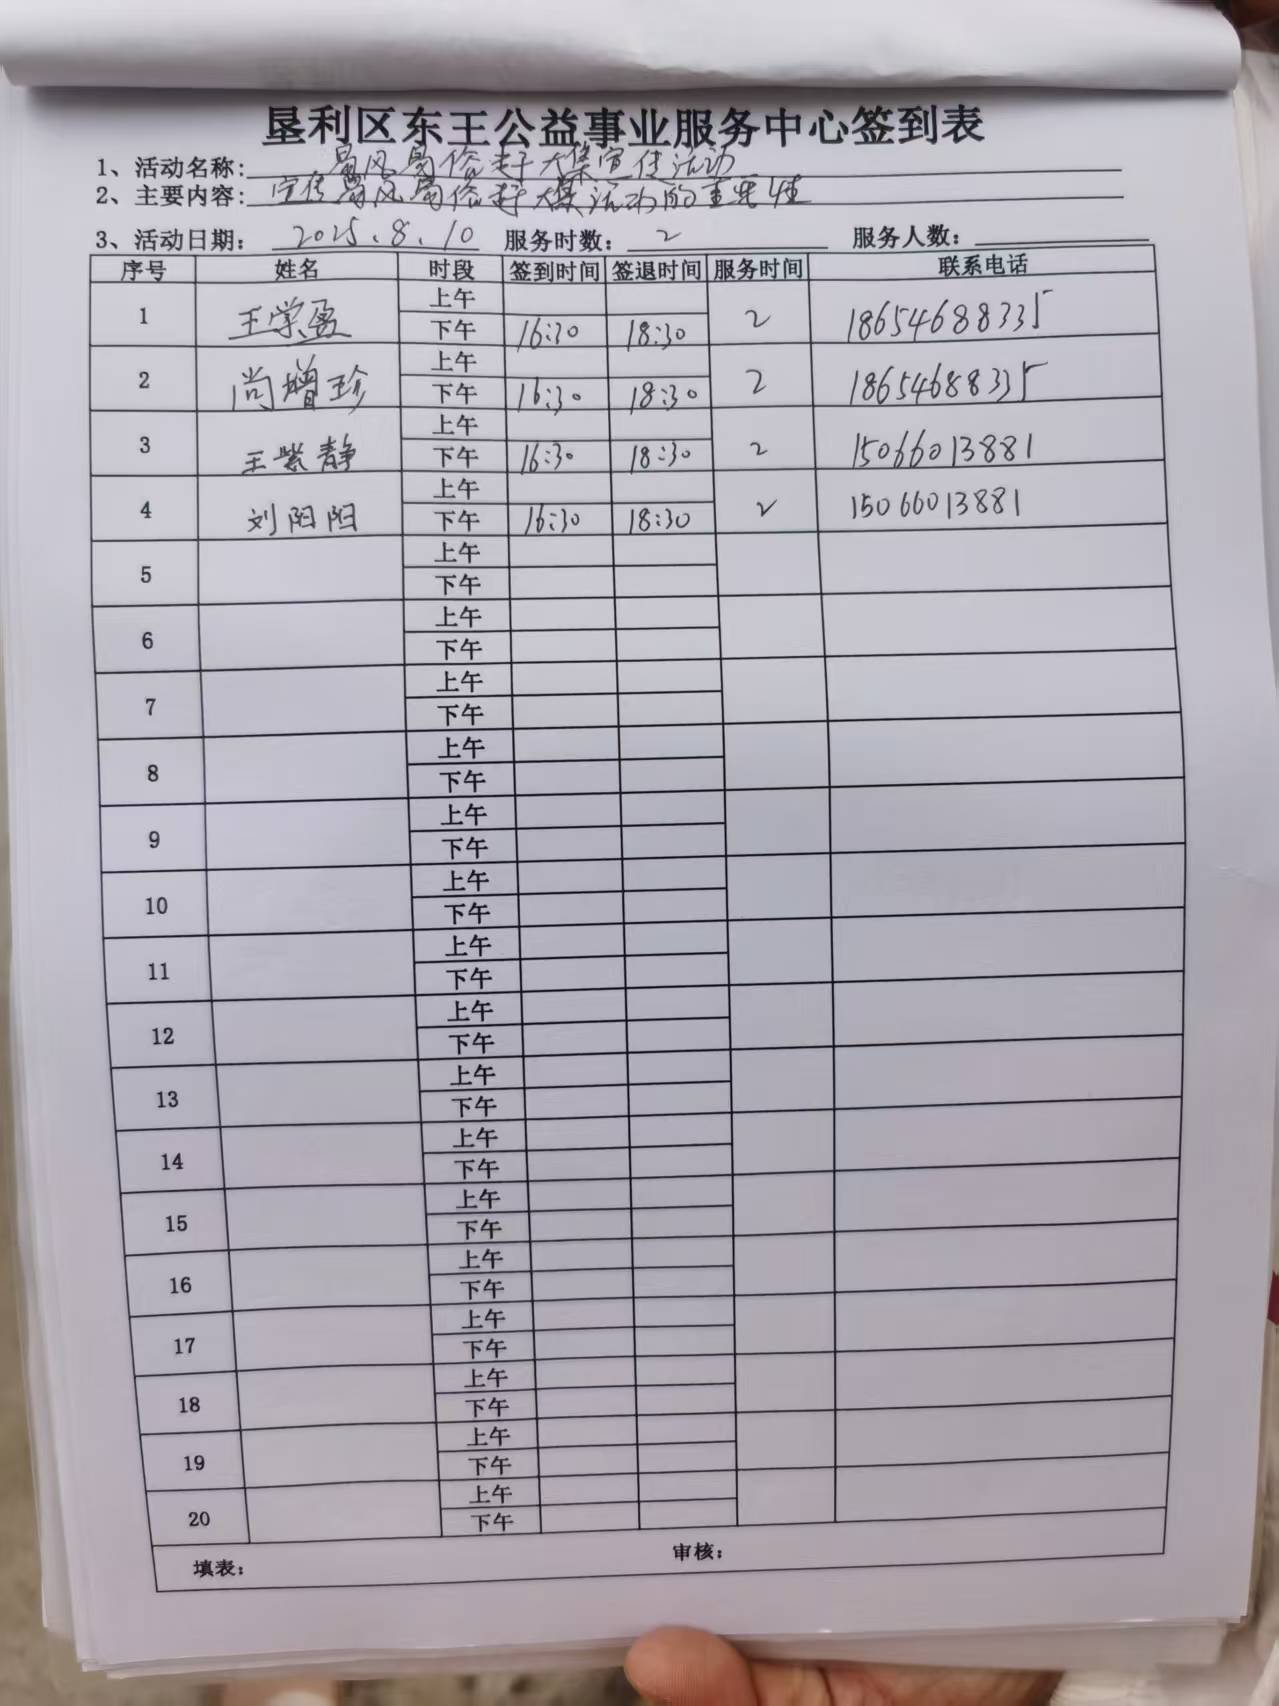 垦利区东王公益事业服务中心签到表
1、活动名称: 易风易俗赶大集宣传活动
2、主要内容: 宣传易风易俗赶大集活动的重要性
3、活动日期: 2025.8.10 服务时数: 2 服务人数:
序号 姓名 时段 签到时间 签退时间 服务时间 联系电话
1 王学盈 上午 2 18654688335
下午 16:30 18:30
2 尚增珍 上午 2 18654688335
下午 16:30 18:30
3 王紫静 上午 2 15066013881
下午 16:30 18:30
4 刘阳阳 上午 2 15066013881
下午 16:30 18:30
5 上午
下午
6 上午
下午
7 上午
下午
8 上午
下午
9 上午
下午
10 上午
下午
11 上午
下午
12 上午
下午
13 上午
下午
14 上午
下午
15 上午
下午
16 上午
下午
17 上午
下午
18 上午
下午
19 上午
下午
20 上午
下午
填表: 审核: